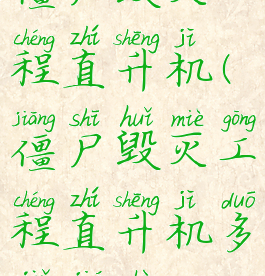 chéng zhí shēng jī
程直升机(
jiāng shī huǐ miè gōng
僵尸毁灭工
chéng zhí shēng jī duō
程直升机多